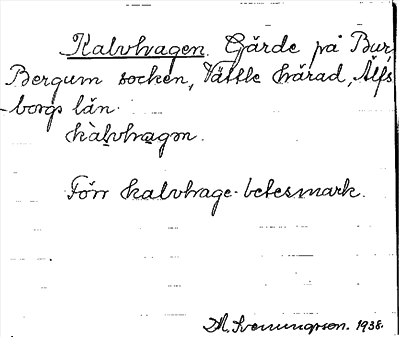 Kalvhagen. Gärde på Bur,
Bergum socken, Vättle härad, Älfs
-borgs län.
kalvhagən.
Förr kalvhage-betesmark.
M. Svenungsson. 1938.